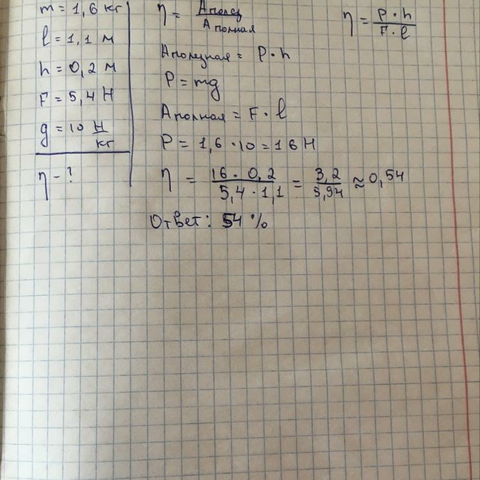 m = 1,6 кг
l = 1,1 м
h = 0,2 м
F = 5,4 Н
g = 10 Н/кг
η - ?
η = Аполез/Аполная
Аполезная = P · h
P = mg
Аполная = F · l
P = 1,6 · 10 = 16 Н
η = 16 · 0,2/5,4 · 1,1 = 3,2/5,94 ≈ 0,54
Ответ: 54 %
η = P · h/F · l